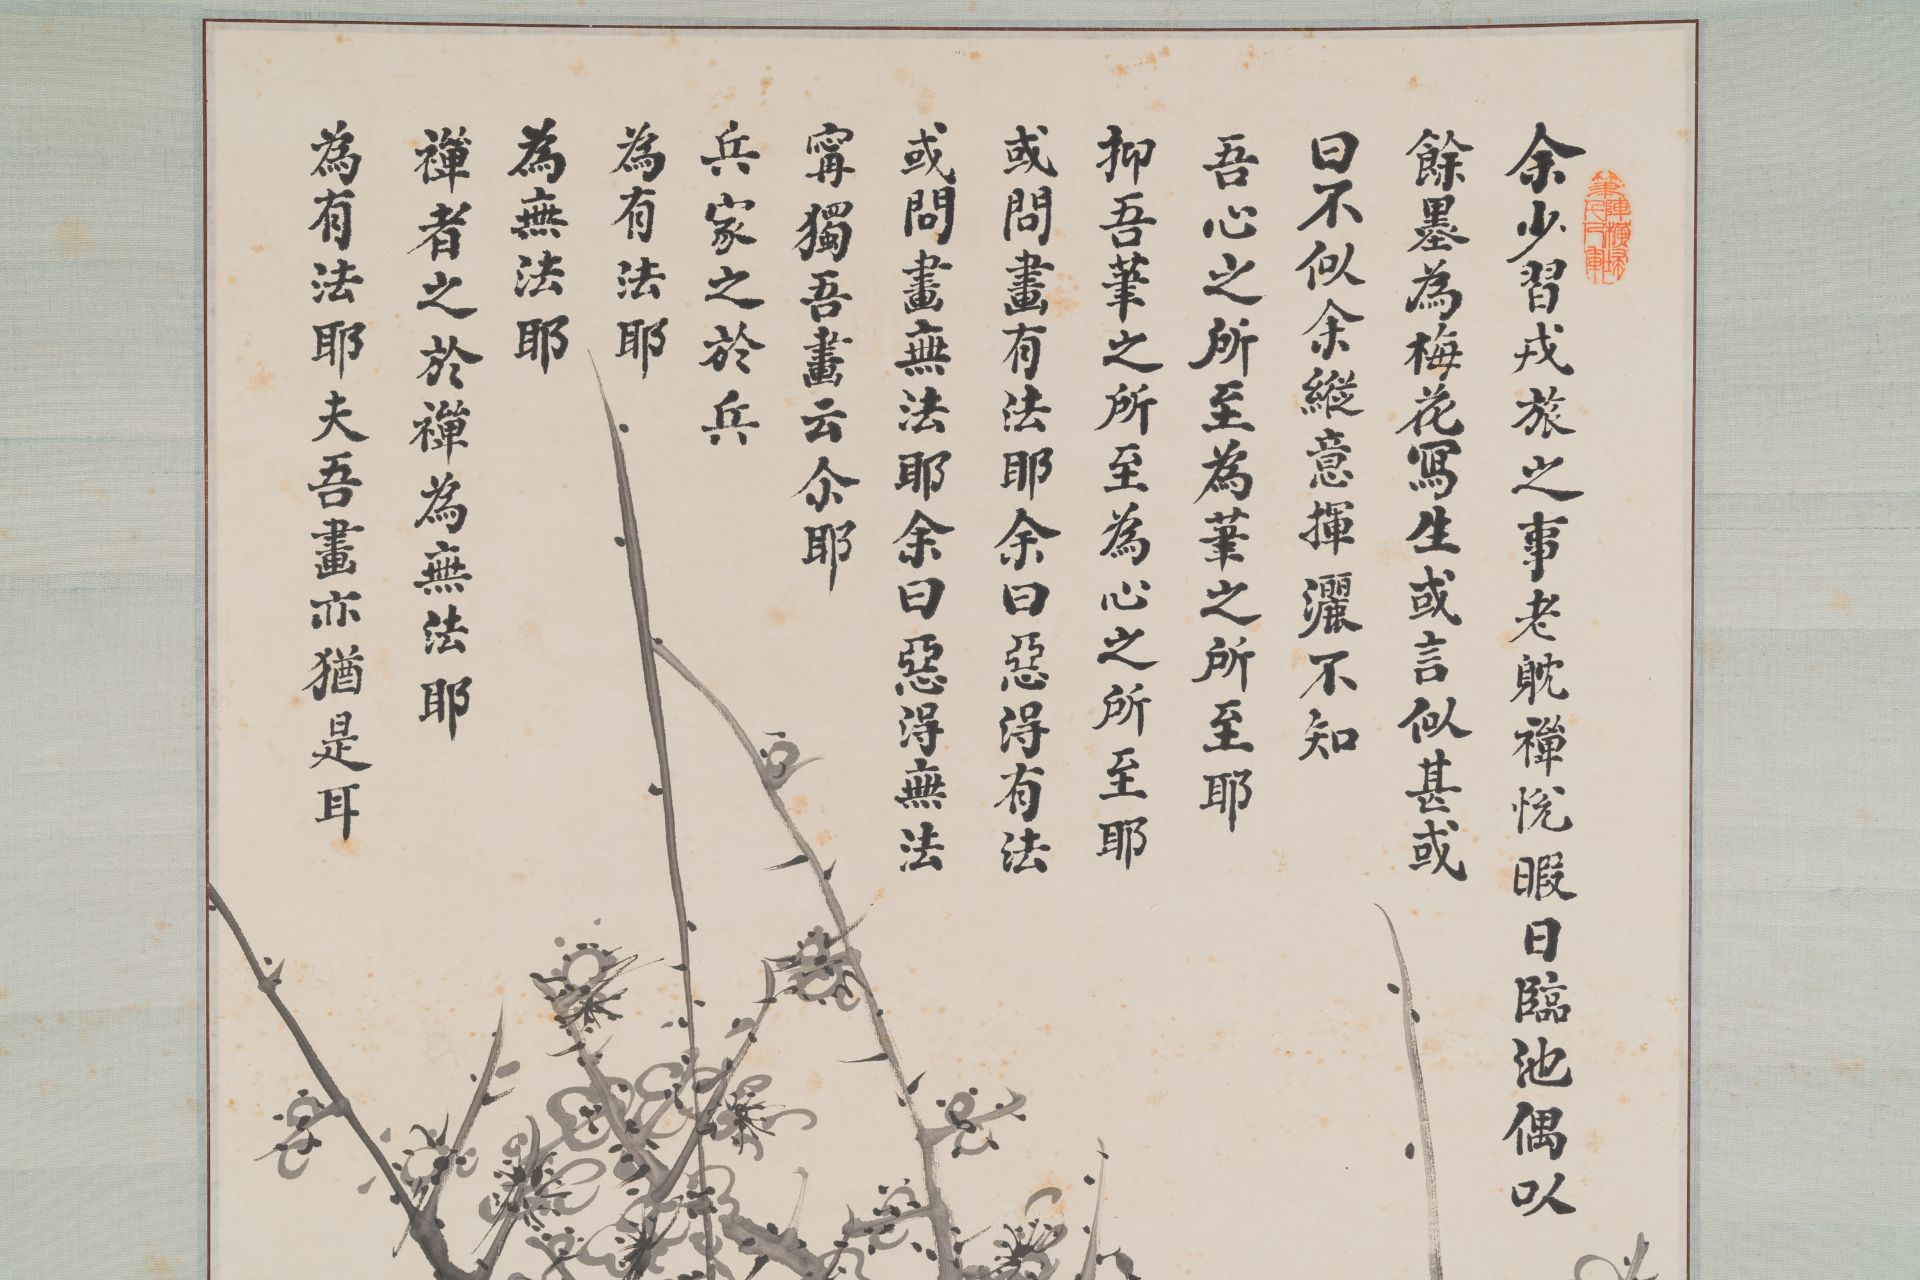 余少習戎旅之事老躭禪悅暇日臨池偶以
餘墨為梅花寫生或言似甚或
曰不似余縱意揮灑不知
吾心之所至為筆之所至耶
抑吾筆之所至為心之所至耶
或問畫有法耶余曰惡得有法
或問畫無法耶余曰惡得無法
甯獨吾畫云尒耶
兵家之於兵
為有法耶
為無法耶
禪者之於禪為無法耶
為有法耶夫吾畫亦猶是耳
筆陣橫掃千人軍